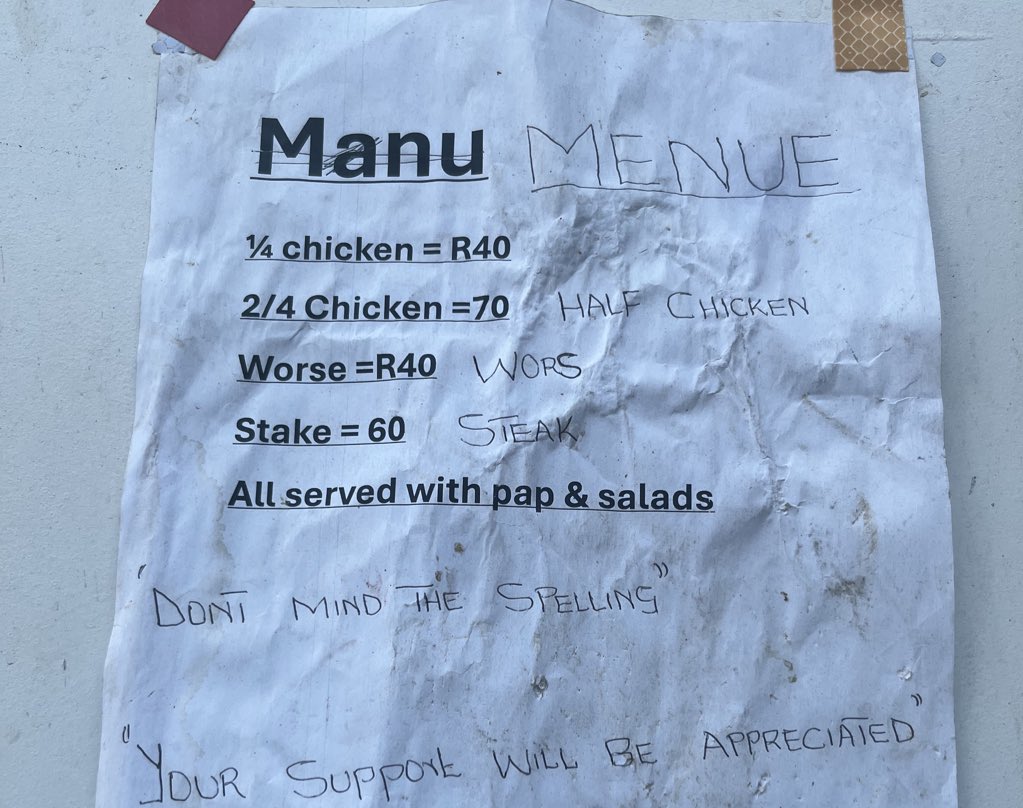 Manu MENUE
¼ chicken = R40
2/4 Chicken =70 HALF CHICKEN
Worse =R40 WORS
Stake = 60 STEAK
All served with pap & salads
"DONT MIND THE SPELLING"
"YOUR SUPPORT WILL BE APPRECIATED"